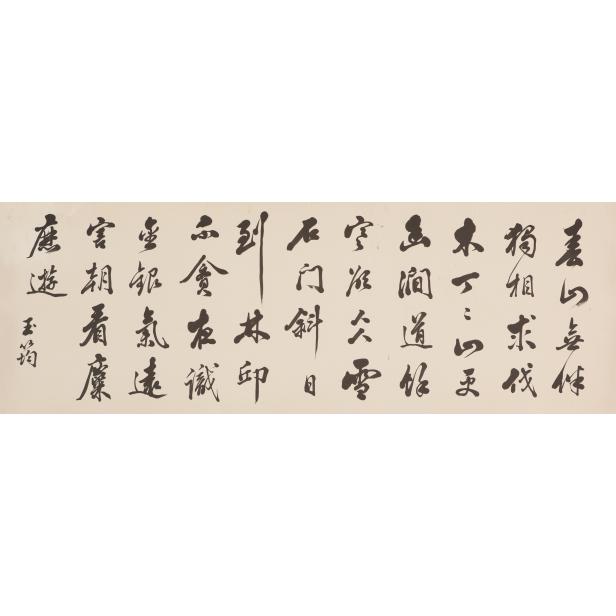 春山無伴
獨相求伐
木丁〻山更
幽澗道餘
寒歷仌雪
石門斜日
到林邱
不貪夜識
金銀氣遠
害朝看麋
鹿遊
玉筠